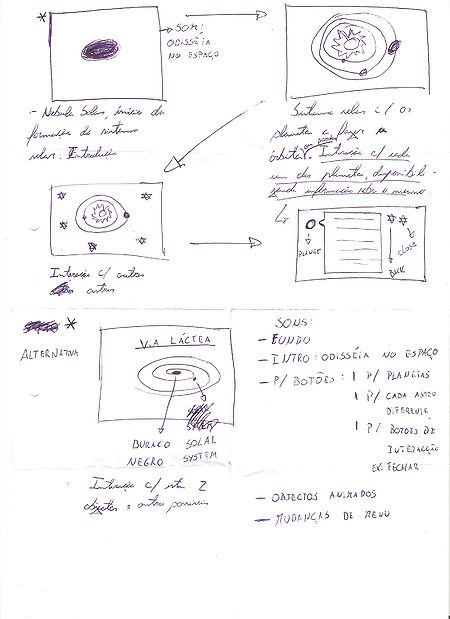 * → SOM:
ODISSÉIA
NO ESPAÇO
- Nebula Solar, início da
formação do sistema
solar. Introdução
Sistema solar c/ os
planetas a fazer a
órbita. Interação c/ cada
um dos planetas, disponibili-
zando informação sobre o mesmo.
PLANET
BACK
CLOSE
Interação c/ outros
astros
*
ALTERNATIVA
VIA LÁCTEA
BURACO
NEGRO
SOLAR
SYSTEM
Interação c/ estes 2
objectos e outros possíveis
SONS:
- FUNDO
- INTRO: ODISSÉIA NO ESPAÇO
- P/ BOTÕES: 1 P/ PLANETAS
1 P/ CADA ASTRO
DIFERENTE
1 P/ BOTOES DE
INTERACÇÃO
EX: FECHAR
- OBJECTOS ANIMADOS
- MUDANÇAS DE MENU